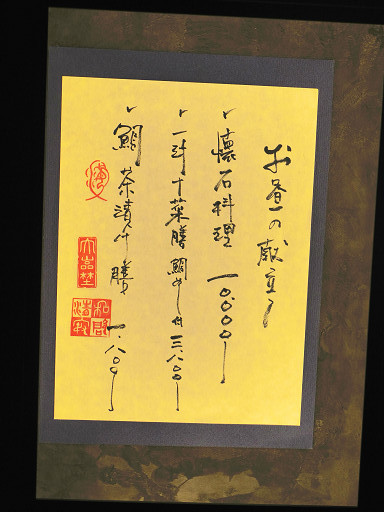 お昼の献立
懐石料理 一〇.〇〇〇
一汁十菜膳 鯛めし付 三.八〇〇
鯛茶漬け膳 一.八〇〇